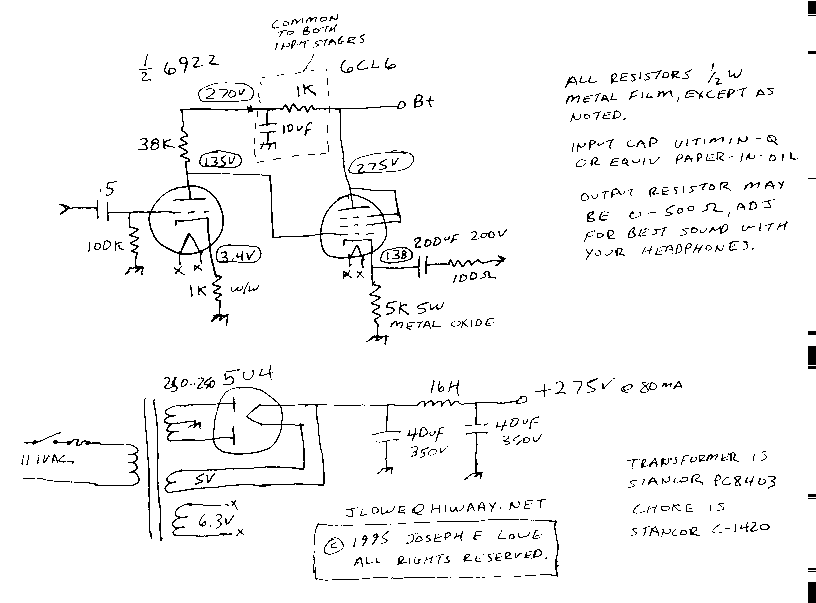 COMMON
TO BOTH
INPUT STAGES
1/2 6922
6CL6
270V
1K
B+
10UF
38K
135V
275V
.5
100K
3.4V
138
200UF 200V
X X
X X
100Ω
1K W/W
5K 5W
METAL OXIDE
ALL RESISTORS 1/2 W
METAL FILM, EXCEPT AS
NOTED.
INPUT CAP VITIMIN-Q
OR EQUIV PAPER-IN-OIL
OUTPUT RESISTOR MAY
BE 0-500Ω, ADJ
FOR BEST SOUND WITH
YOUR HEADPHONES.
5U4
16H
+275V @ 80MA
40UF
350V
40UF
350V
VAC
5V
6.3V
X
X
TRANSFORMER IS
STANCOR PC8403
CHOKE IS
STANCOR C-1420
JLOWE@HIWAAY.NET
© 1995 JOSEPH E LOWE
ALL RIGHTS RESERVED.